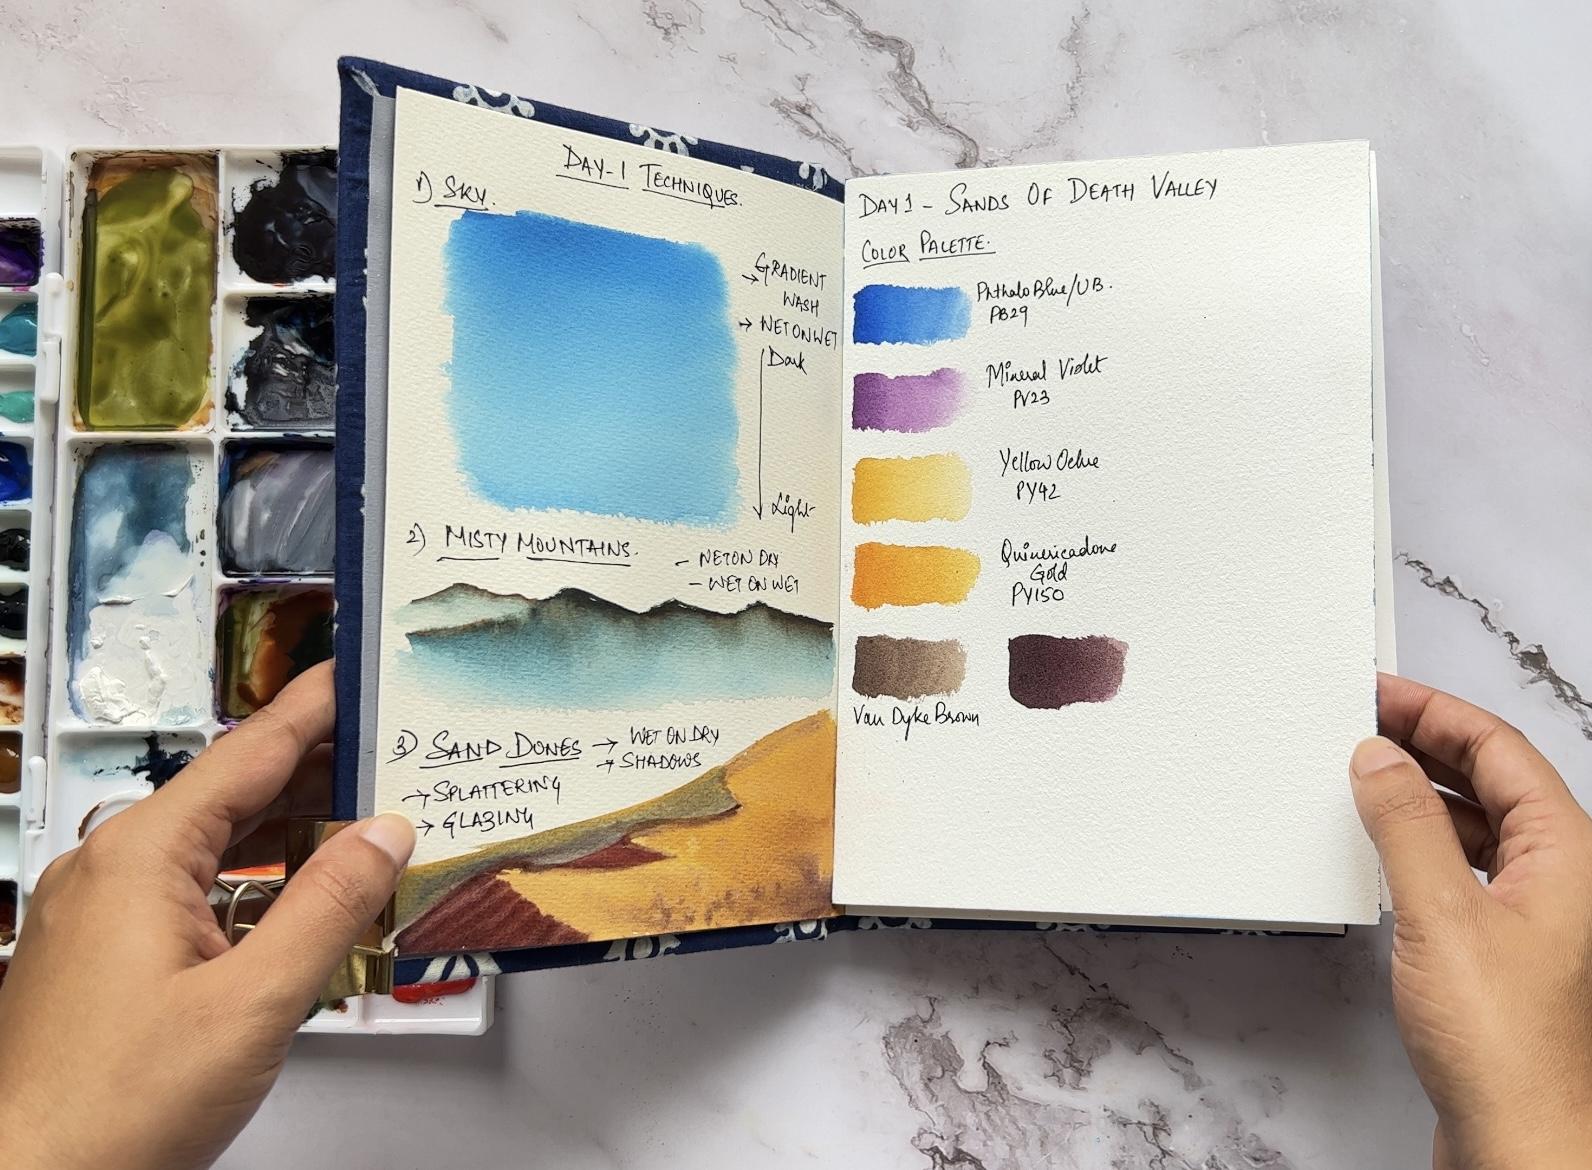 DAY-1 TECHNIQUES.
1) SKY.
→ GRADIENT
WASH
→ WET ON WET
Dark
Light
2) MISTY MOUNTAINS.
- WET ON DRY
- WET ON WET
3) SAND DONES → WET ON DRY
→ SHADOWS
→ SPLATTERING
→ GLAZING
DAY 1 - SANDS OF DEATH VALLEY
COLOR PALETTE.
Phthalo Blue/UB.
PB29
Mineral Violet
PV23
Yellow Ochre
PY42
Quinericadone
Gold
PY150
Van Dyke Brown